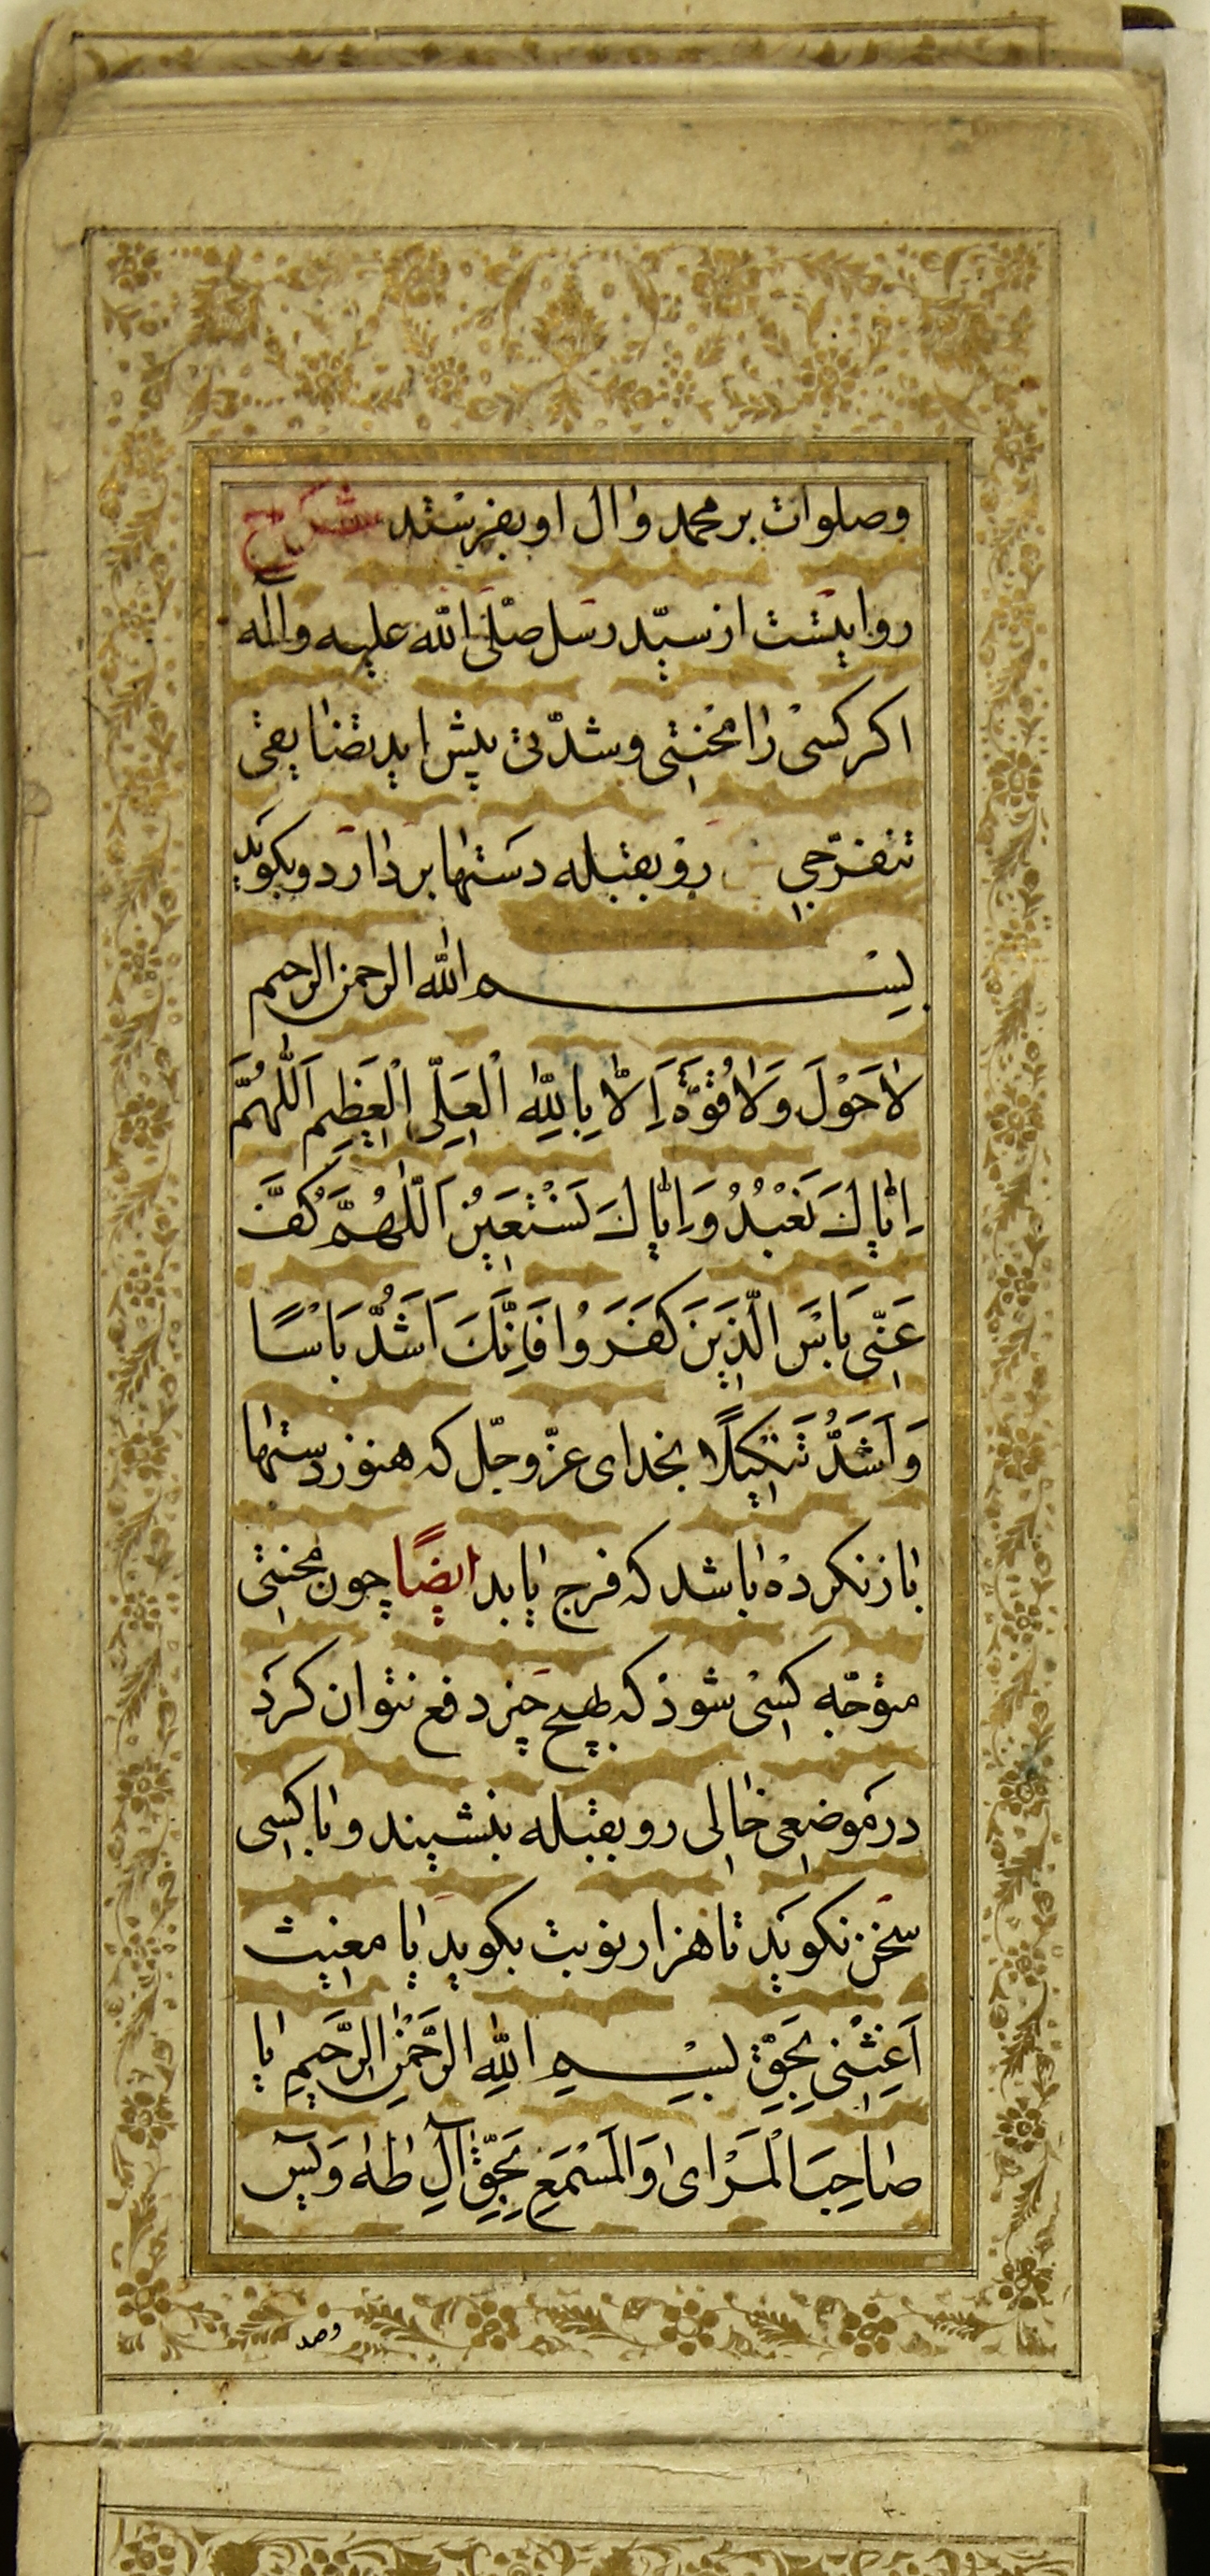 وصلوات بر محمد وال او بفرستد شرح
روایتست از سیّد رسل صلّی الله علیه وآله
اکر کسی را محنتی وشدّتی پیش اید بضایقی
تنفرّجی رو بقبله دستها بر دارد وبکوید
بسم الله الرحمن الرحیم
لا حَوْلَ وَلا قُوَّةَ اِلّا بِاللّهِ الْعَلِیِّ الْعَظِیمِ اَللّهُمَّ
اِیّاكَ نَعْبُدُ وَاِیّاكَ نَسْتَعِینُ اَللّهُمَّ كُفَّ
عَنّی بَاْسَ الَّذِینَ كَفَرَوُا فَاِنَّكَ اَشَدُّ بَاْسًا
وَاَشَدُّ تَنْكِیلًا بخدای عزّ وجلّ که هنوز دستها
باز نکرده باشد که فرج یابد ایضًا چون محنتی
متوجّه کسی شود که بهیچ چیز دفع نتوان کرد
در موضعی خالی رو بقبله بنشیند وبا کسی
سخن نکوید تا هزار نوبت بکوید یا مغیث
اَغِثْنی بِحَقِّ بسم اللهِ الرَّحْمٰنِ الرَّحیمِ یا
صاحِبَ الْمَرْای وَالْمَسْمَعِ بِحَقِّ آلِ طٰهٰ وَیٰسٓ
وصد